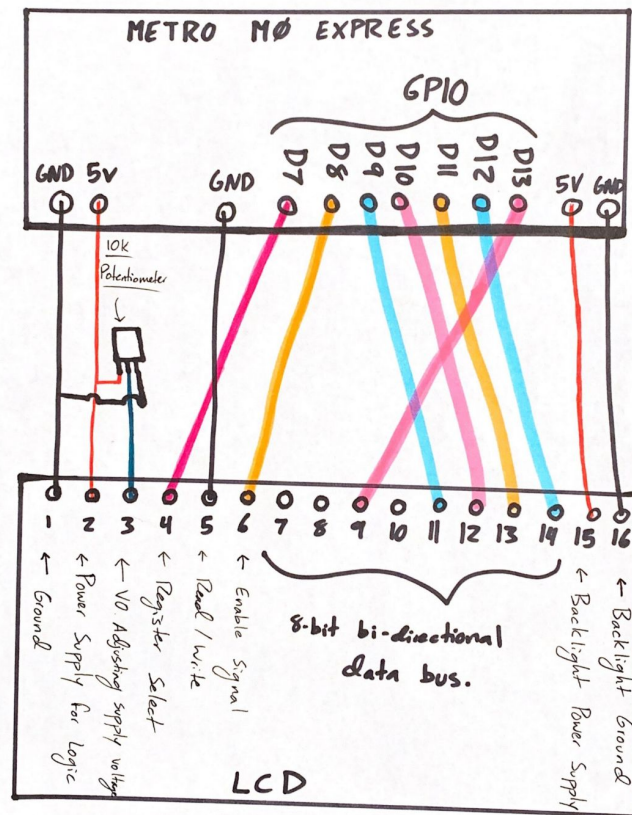 METRO MØ EXPRESS
GPIO
GND
5V
GND
D7
D8
D9
D10
D11
D12
D13
5V
GND
10k
Potentiometer
1
2
3
4
5
6
7
8
9
10
11
12
13
14
15
16
← Ground
← Power Supply for Logic
← VO Adjusting supply voltage
← Register Select
← Read / Write
← Enable Signal
8-bit bi-directional
data bus.
← Backlight Power Supply
← Backlight Ground
LCD